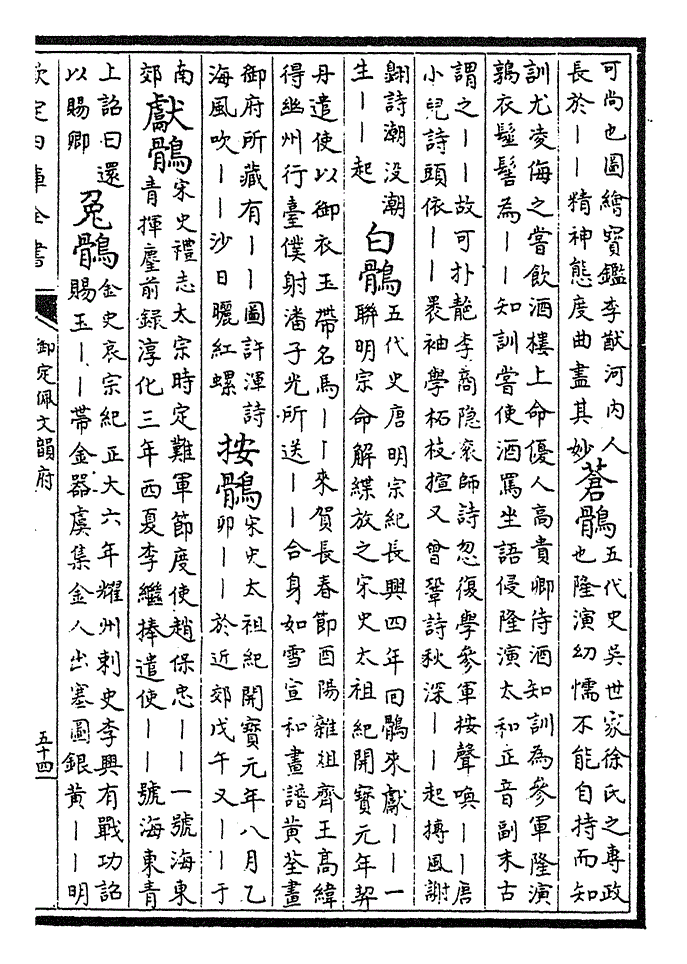 可尚也圖繪寶鑑李猷河内人
長於丨丨精神態度曲盡其妙
蒼鶻
五代史吳世家徐氏之專政
也隆演幼懦不能自持而知
訓尤凌侮之嘗飲酒樓上命優人高貴卿侍酒知訓為參軍隆演
鶉衣髽髻為丨丨知訓嘗使酒罵坐語侵隆演太和正音副末古
謂之丨丨故可扑靘李商隐衮師詩忽復學參軍按聲喚丨丨唐
小兒詩頭依丨丨褁袖學柘枝揎又曾鞏詩秋深丨丨起摶風謝
翺詩潮没潮
生丨丨起
白鶻
五代史唐明宗紀長興四年回鶻來獻丨丨一
聯明宗命解緤放之宋史太祖紀開寳元年契
丹遣使以御衣玉帶名馬丨丨來賀長春節酉陽雜俎齊王高緯
得幽州行臺僕射潘子光所送丨丨合身如雪宣和畫譜黄筌畫
御府所藏有丨丨圖許渾詩
海風吹丨丨沙日曬紅螺
按鶻
宋史太祖紀開寳元年八月乙
卯丨丨於近郊戊午又丨丨于
南
郊
獻鶻
宋史禮志太宗時定難軍節度使趙保忠丨丨一號海東
青揮麈前録淳化三年西夏李繼捧遣使丨丨號海東青
上詔曰還
以賜卿
兎鶻
金史哀宗紀正大六年耀州刺史李興有戰功詔
賜玉丨丨帶金器虞集金人出塞圖銀黄丨丨明
欽定四庫全書
御定佩文韻府
五十四